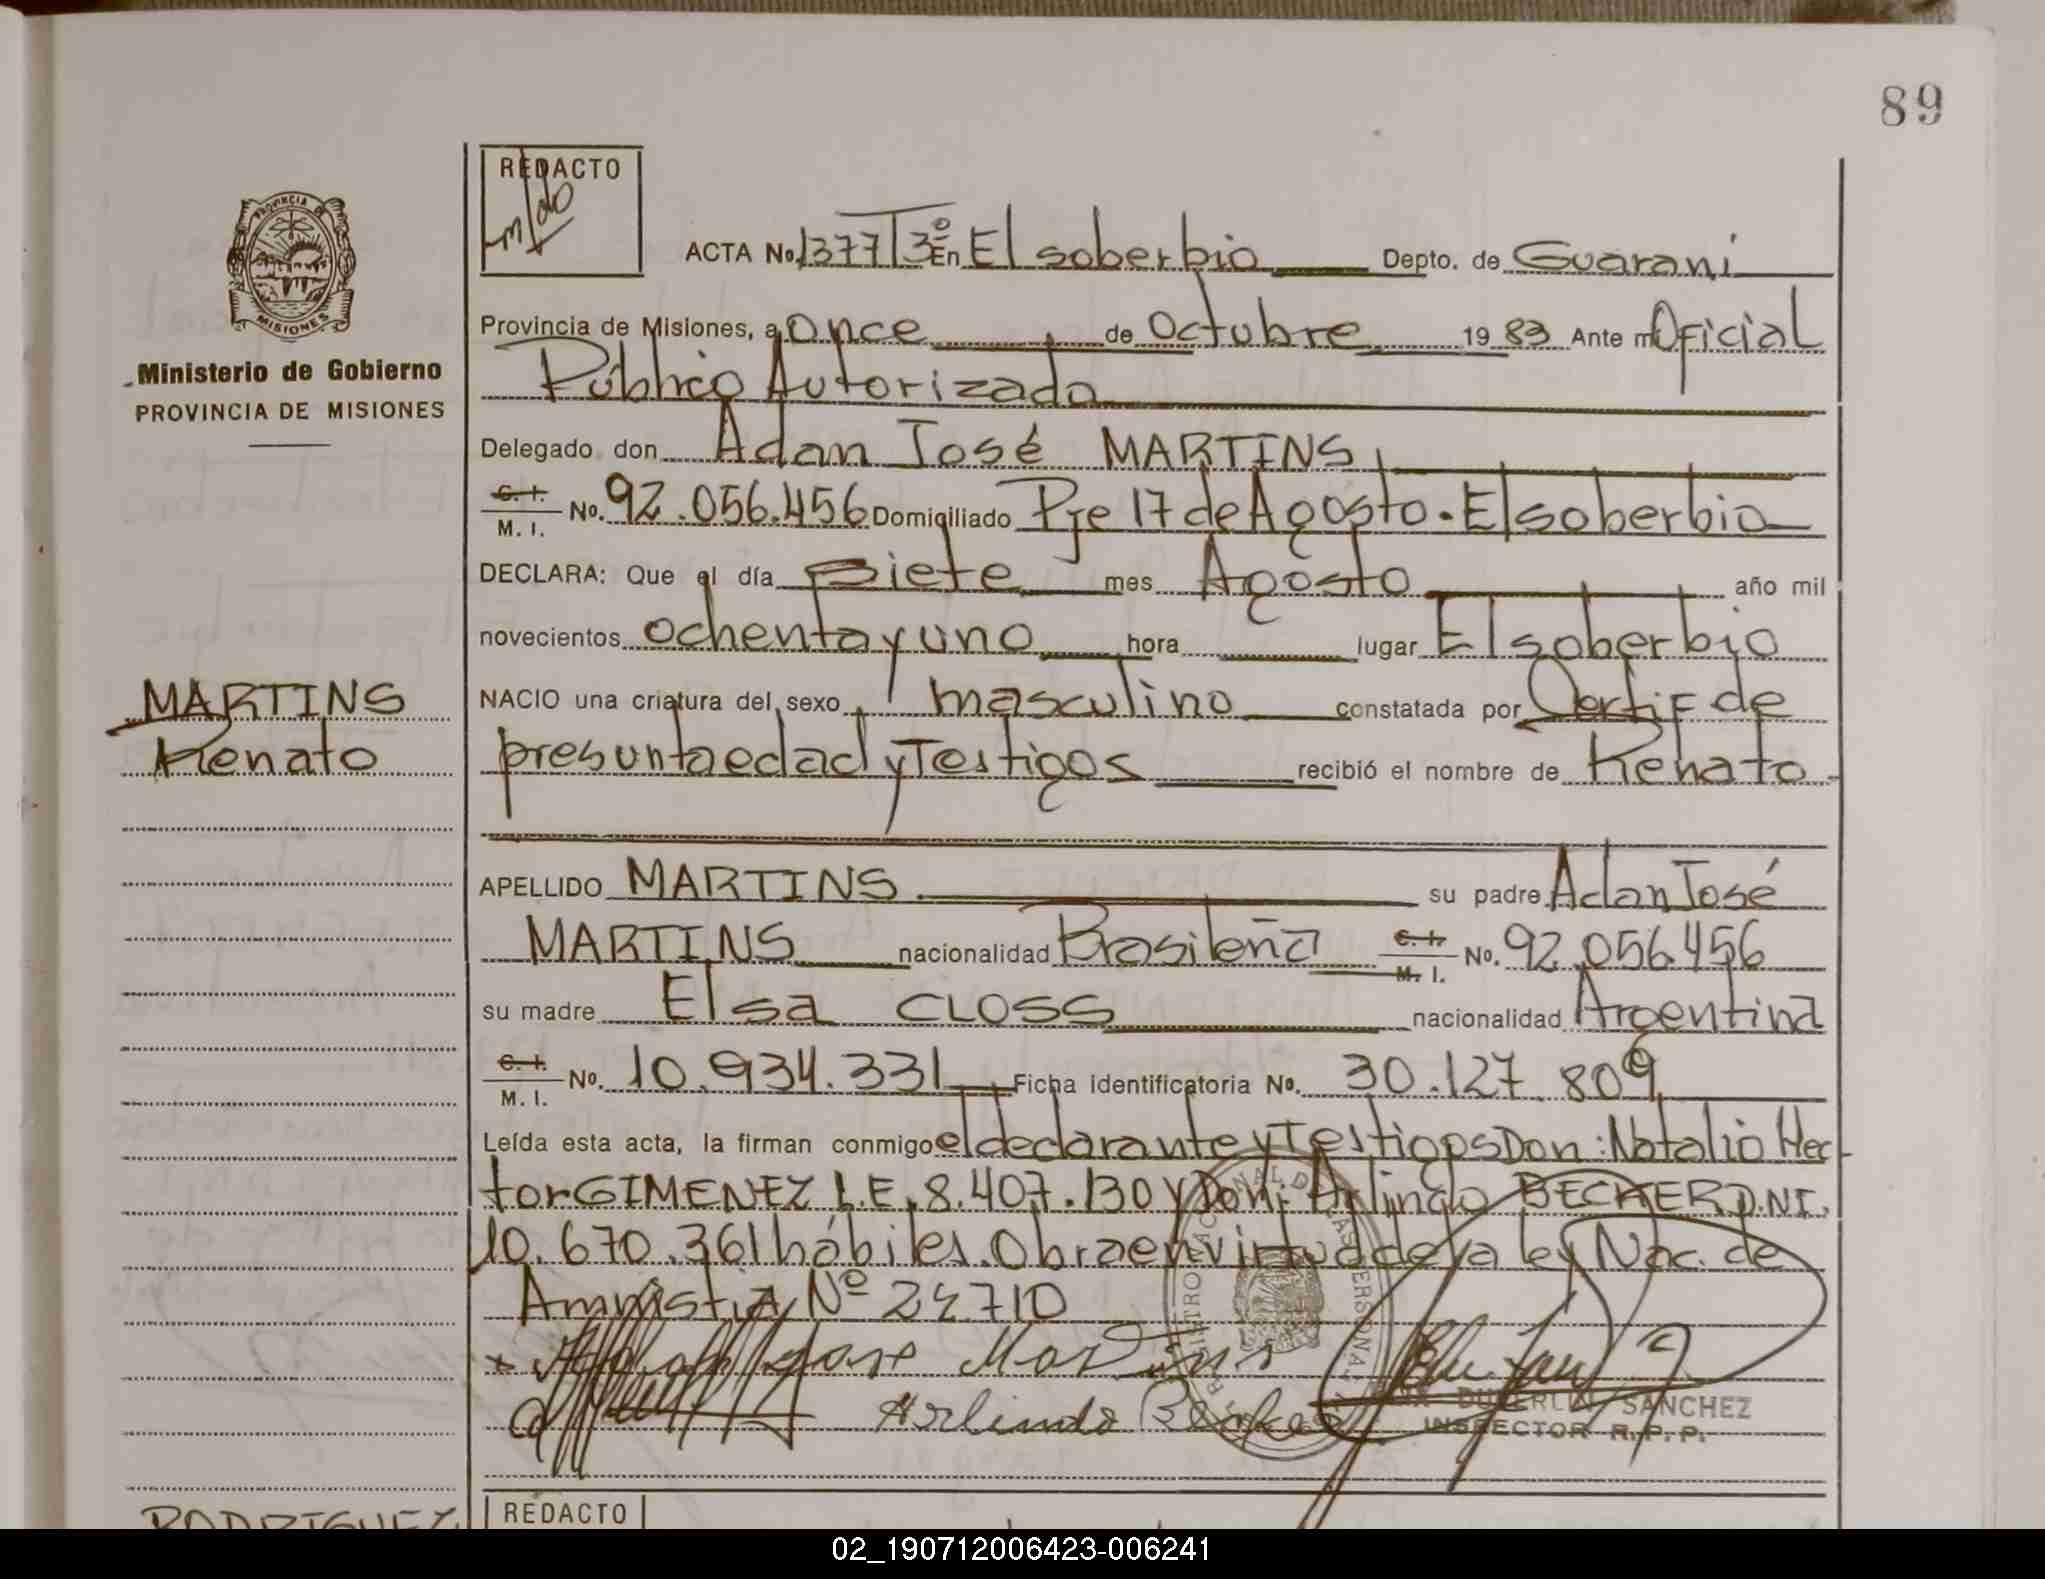 89
REDACTO
m/do
ACTA No. 1377 T3º En El soberbio Depto. de Guarani
PROVINCIA DE
MISIONES
Provincia de Misiones, a once de Octubre 19 83 Ante mi Oficial
Ministerio de Gobierno
PROVINCIA DE MISIONES
Público Autorizado
Delegado don Adan José MARTINS
C. I. M. I. No. 92.056.456 Domiciliado Pje 17 de Agosto. El soberbio
DECLARA: Que el día siete mes Agosto año mil
novecientos ochenta y uno hora lugar El soberbio
MARTINS
Renato
NACIO una criatura del sexo masculino constatada por Certif de
presunta edad y Testigos recibió el nombre de Renato
APELLIDO MARTINS su padre Adan José
MARTINS nacionalidad Brasileña C. I. M. I. No. 92.056.456
su madre Elsa CLOSS nacionalidad Argentina
C. I. M. I. No. 10.934.331 Ficha identificatoria No. 30.127.809
Leída esta acta, la firman conmigo el declarante y Testigos Don: Natalio Hec-
tor GIMENEZ L.E. 8.407.130 y Don: Arlindo BECKER D.NI.
10.670.361 hábiles. Obra en virtud de la ley Nac. de
Amnistia Nº 22.710
Jose Martins
Arlindo Becker
DUBERLIN SANCHEZ
INSPECTOR R. P. P.
RODRIGUEZ
REDACTO
02_190712006423-006241